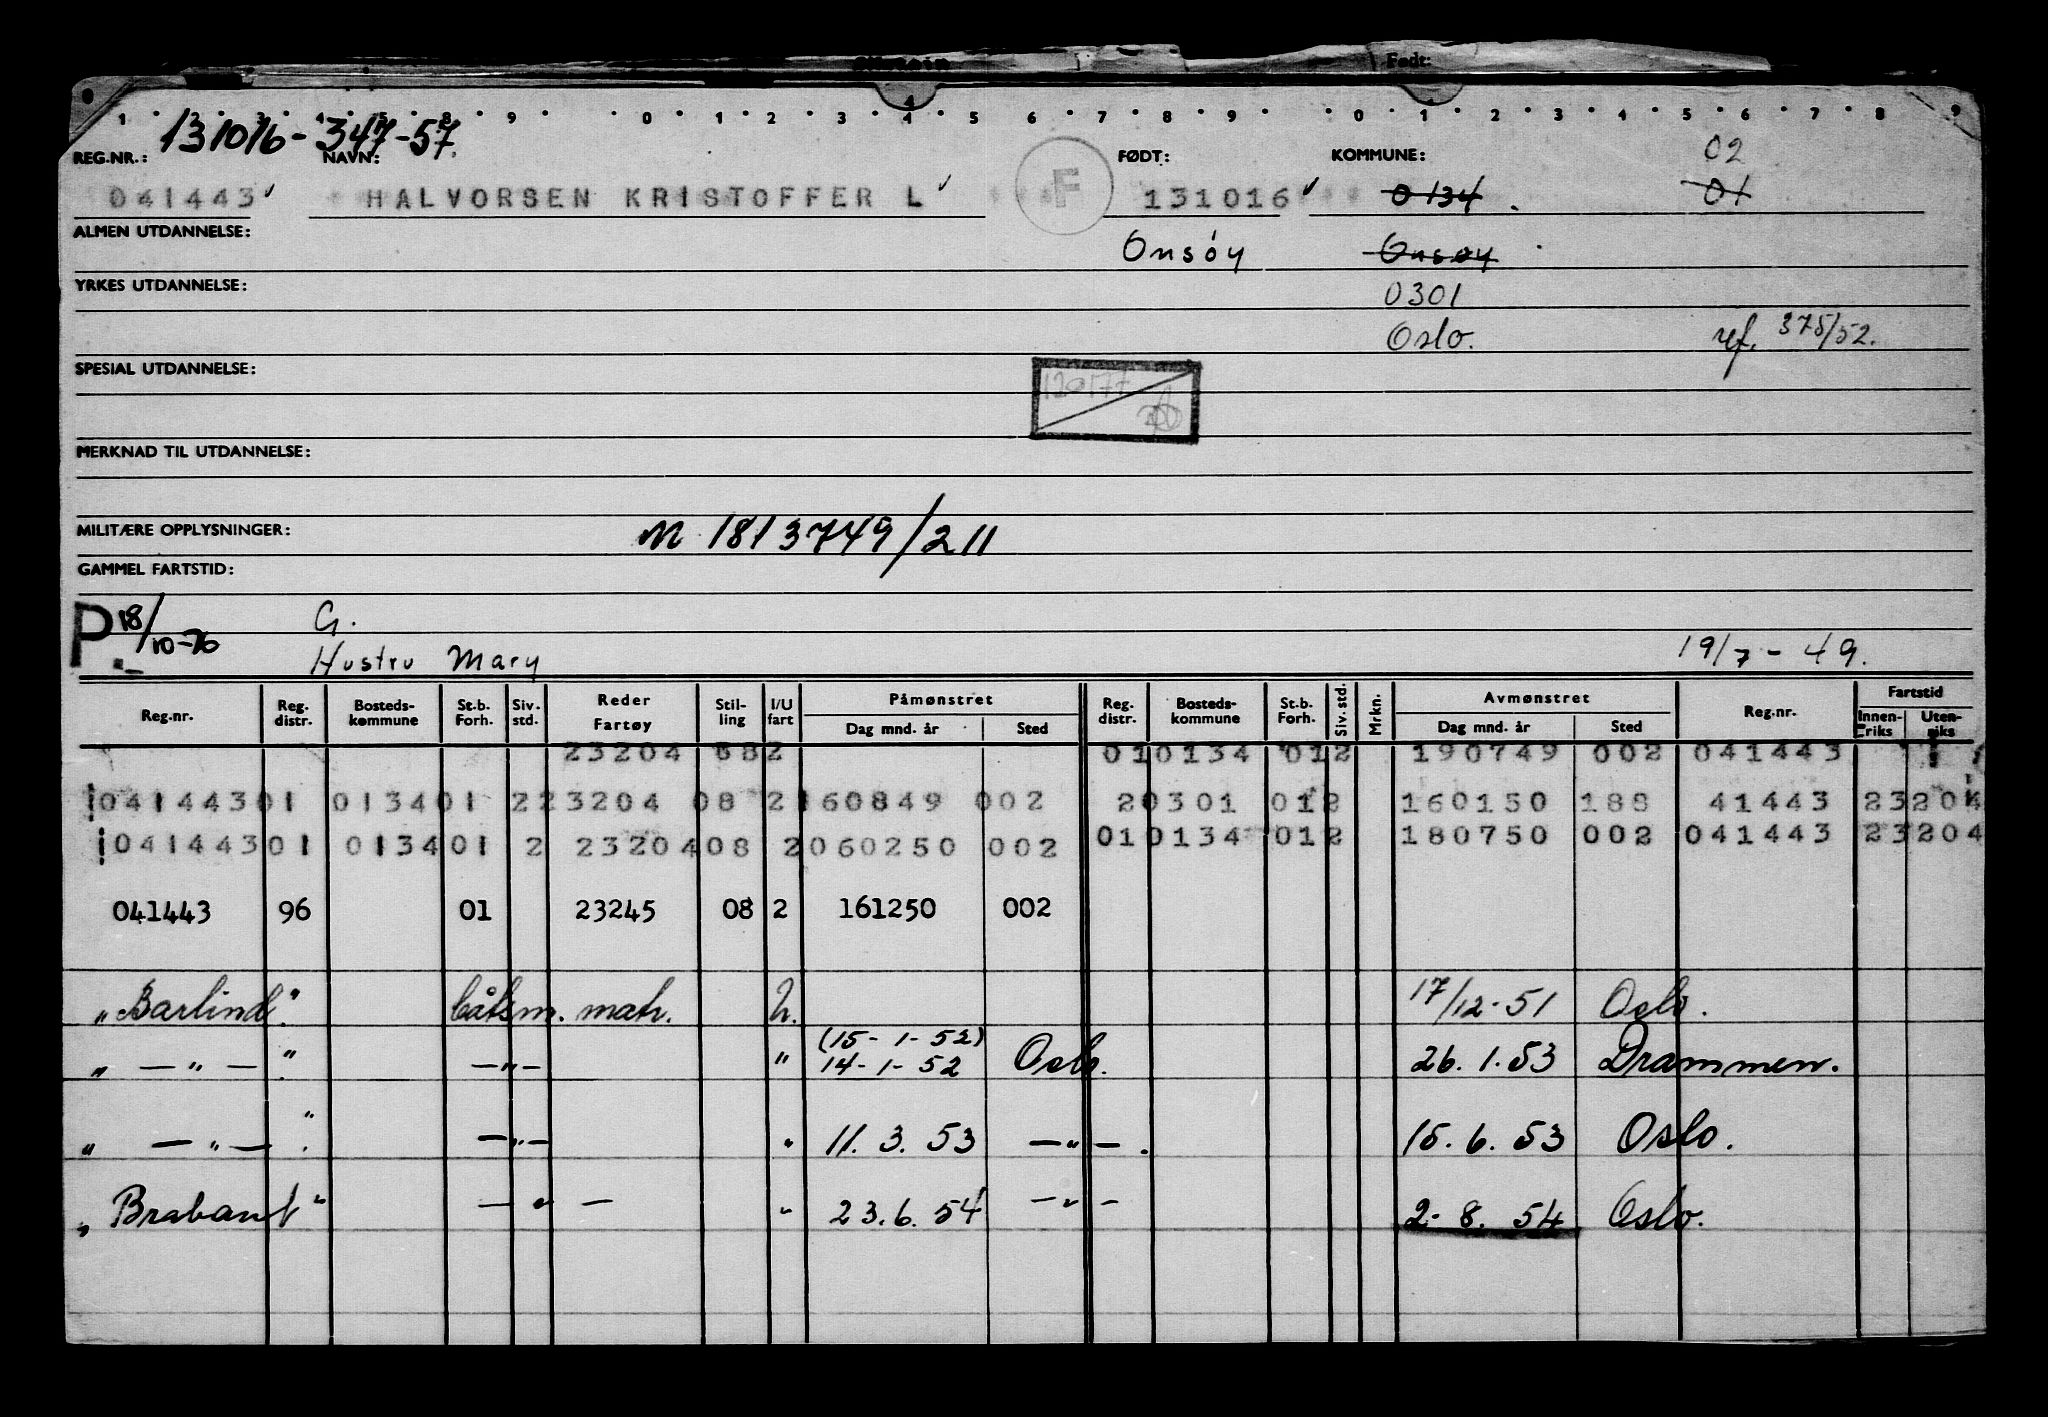 Født:
1 2 3 4 5 7 8 9 0 1 2 3 4 5 6 7 8 9 0 1 2 3 4 5 6 7 8 9
131016-347-57
REG.NR.: NAVN: FØDT: KOMMUNE: 02
041443 HALVORSEN KRISTOFFER L F 131016 0134 01
ALMEN UTDANNELSE: Onsøy Onsøy
YRKES UTDANNELSE: 0301
Oslo. ref. 375/52.
SPESIAL UTDANNELSE:
MERKNAD TIL UTDANNELSE:
MILITÆRE OPPLYSNINGER: M 1813749/211
GAMMEL FARTSTID:
P 18/10-76 G.
Hustru Mary 19/7-49.
Reg.nr. Reg. distr. Bosteds-kommune St.b. Forh. Siv. std. Reder Fartøy Stil-ling I/U fart Påmønstret Dag mnd. år Sted Reg. distr. Bosteds-kommune St.b. Forh. Siv. std. Mrkn. Avmønstret Dag mnd. år Sted Reg.nr. Fartstid Innen-riks Uten-riks
23204 082 010134 012 190749 002 041443
04144301 013401 223204 08 2160849 002 20301 012 160150 188 41443 23204
04144301 013401 2 2320408 2060250 002 010134 012 180750 002 041443 23204
041443 96 01 23245 08 2 161250 002
"Barlind". båtsm. matr. U. 17/12-51 Oslo.
" — " — ". — " — " (15-1-52) 14-1-52 Oslo. 26.1.53 Drammen.
" — " — ". — " — " 11.3.53 — " — . 15.6.53 Oslo.
"Brabant" — " — " 23.6.54 — " — 2-8.54 Oslo.